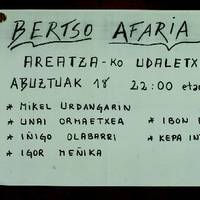 BERTSO AFARIA
AREATZA-KO UDALETX
ABUZTUAK 18 22:00 eta
* MIKEL URDANGARIN
* UNAI ORMAETXEA * IBON
* IÑIGO OLABARRI * KEPA
* IGOR MEÑIKA